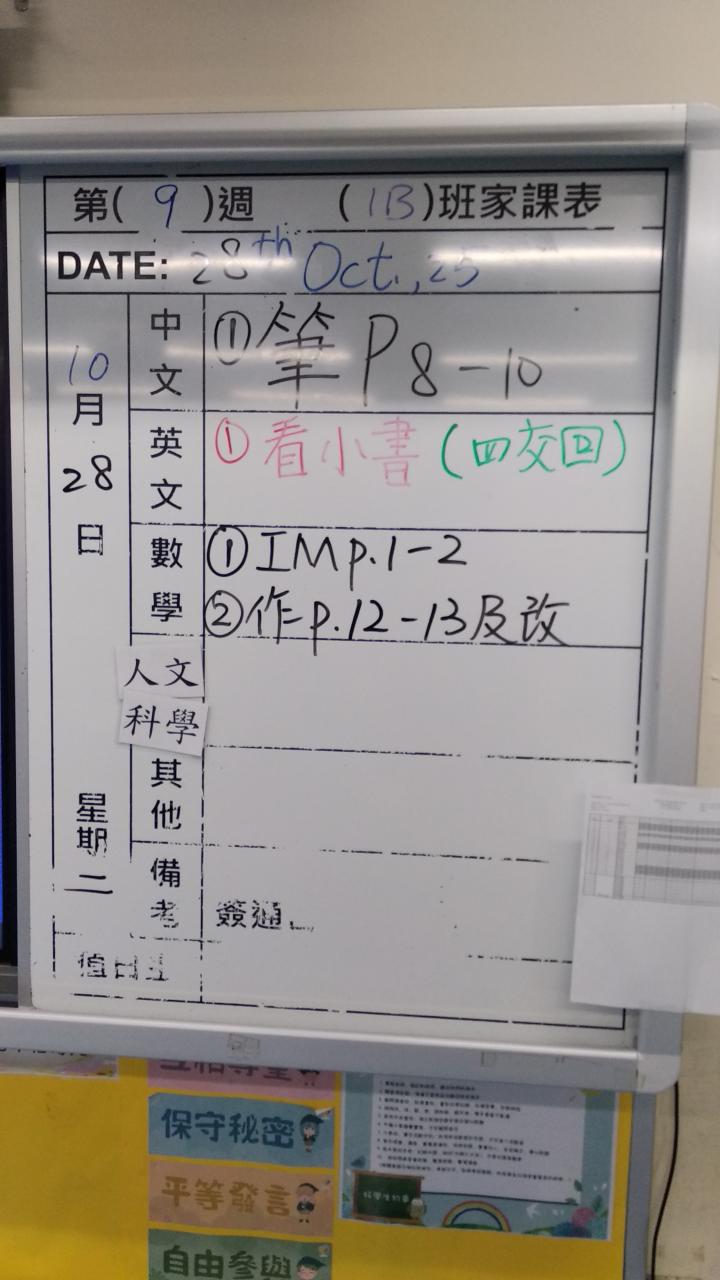 第( 9 )週 (1B)班家課表
DATE: 28th Oct., 25
10月28日
星期二
中文
①筆P8-10
英文
①看小書(四交回)
數學
①IMp.1-2
②作p.12-13及改
人文
科學
其他
備考
簽通
值日生
保守秘密
平等發言
自由參與